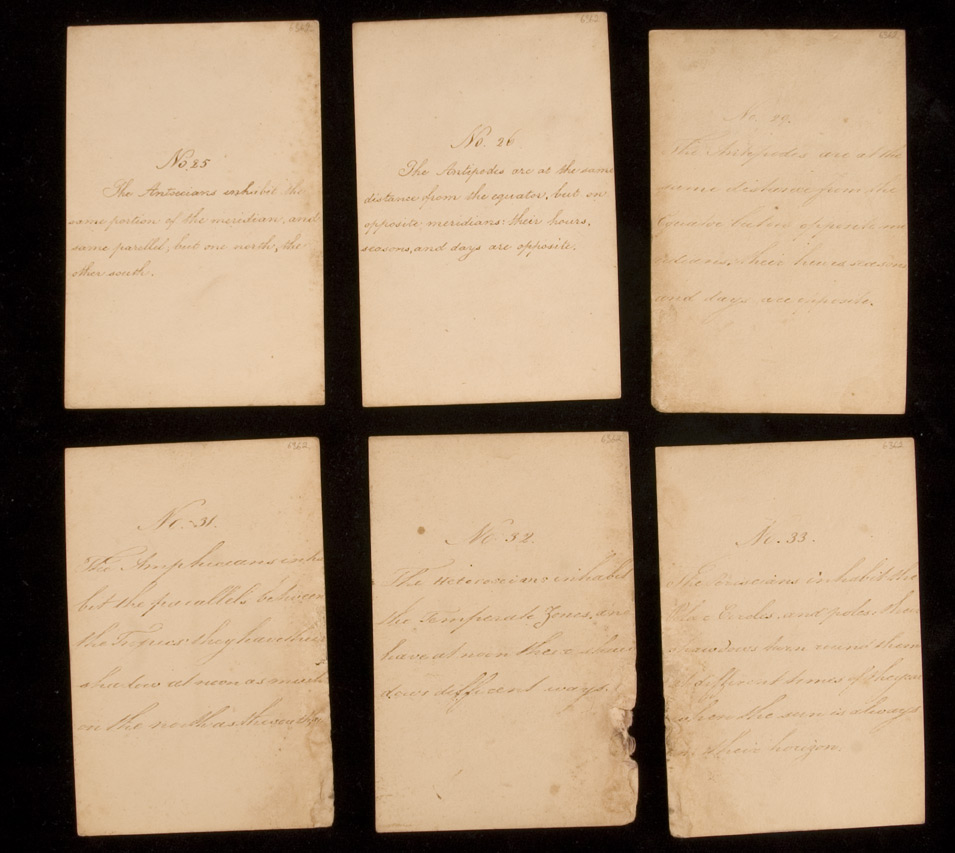 6362
No. 25
The Antoecians inhabit the
same portion of the meridian, and
same parellel; but one north, the
other south.
6362
No. 26
The Antipodes are at the same
distance from the equator, but on
opposite meridians: their hours,
seasons, and days are opposite.
No. 29.
The Antipodes are at the
same distance from the
Equator but on opposite me
ridians. their hours seasons
and days are opposite.
6362
No. 31.
The Amphiscians inha
bit the parallels between
the Tropics they have their
shadow at noon as much
on the north as the south
6362
No. 32.
The Heteroscians inhabit
the Temperate Zones, and
have at noon their shad
dows different ways.
6362
No. 33.
The Periscians inhabit the
Polar Circles and poles. their
shawdows turn round them
at different times of the year
when the sun is always
in their horizon.